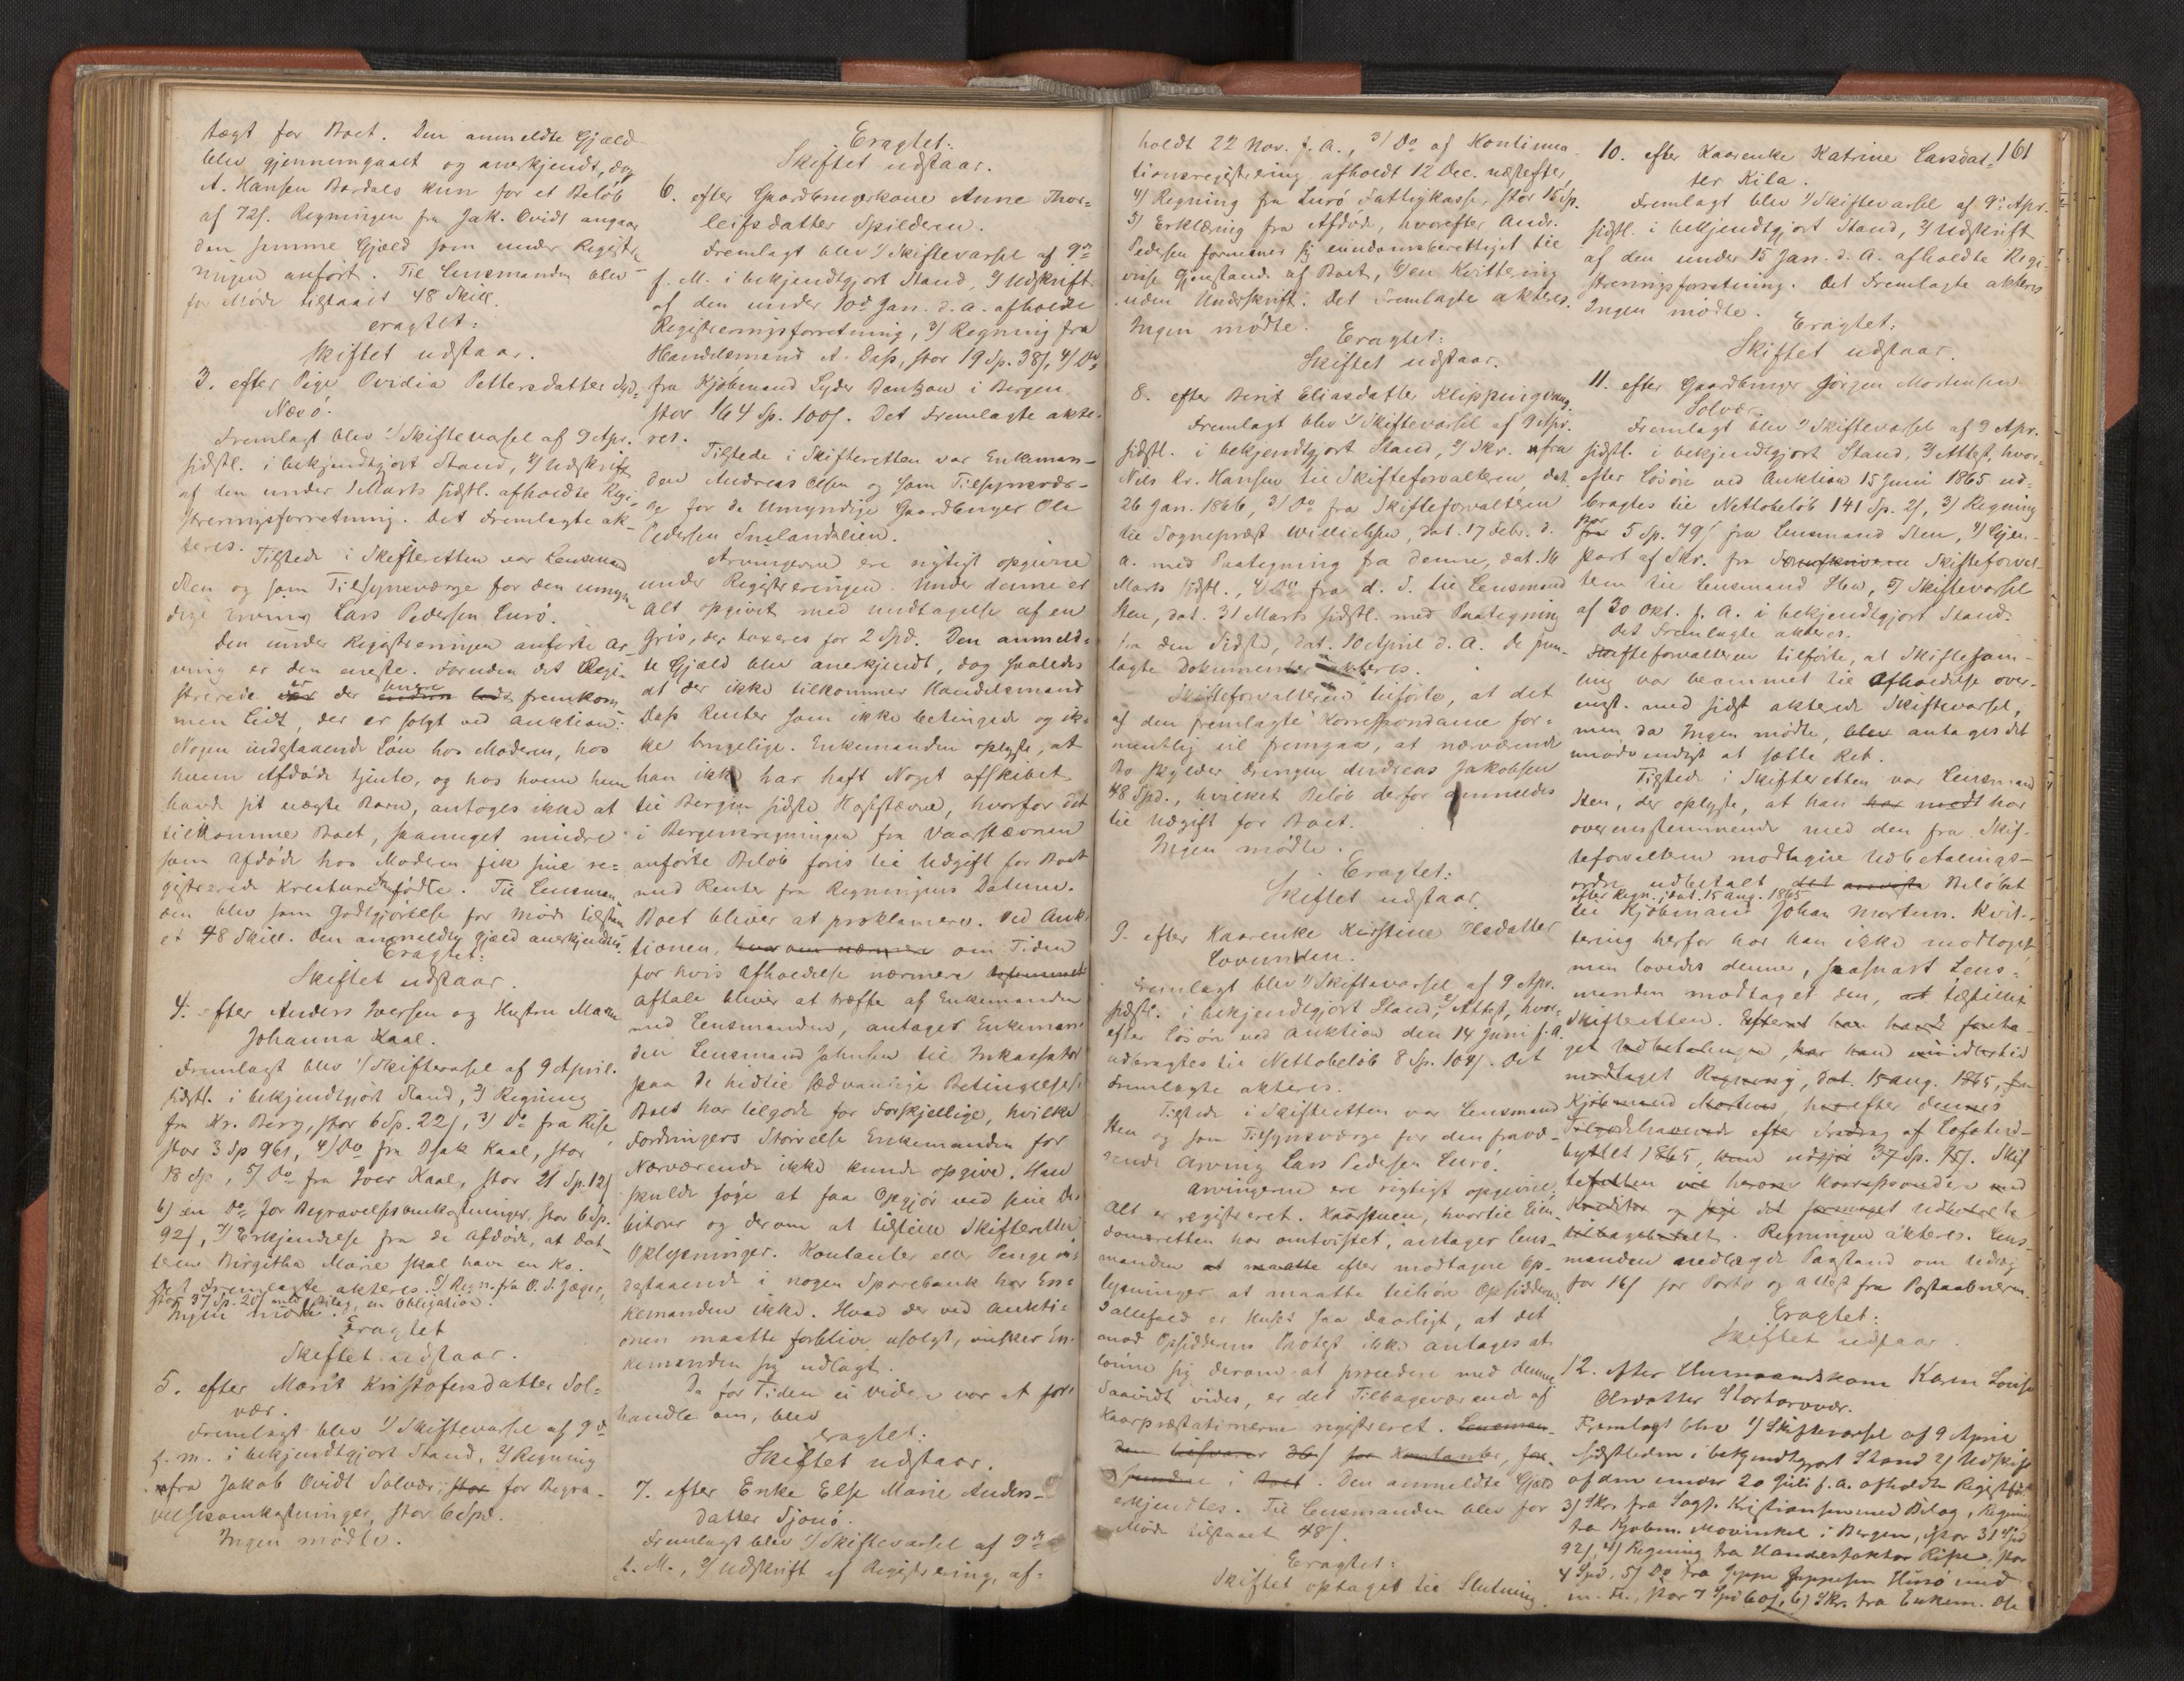 tægt for Boet. Den anmeldte Gjæld
blev gjennemgaaet og anerkjendt, dog
A. Hansen Bardals kun for et Beløb
af 72ſ. Regningen fra Jak. Ovidt angaar
den samme Gjæld som under Registre
ringen anført. Til Lensmanden blev
for Møde tilstaaet 48 Skill.
eragtet:
Skiftet udstaar.
3. efter Pige Ovidia Pettersdatter
Næsø.
Fremlagt blev 1/ Skiftevarsel af 9 Apr.
sidstl. i bekjendtgjort Stand, 2/ Udskrift
af den under Marts sidstl. afholdte Regi-
streringsforretning. Det Fremlagte ak-
teres.
Tilstede i Skifteretten var Lensmand
Sten og som Tilsynsværge for den umyn-
dige Arving Lars Pedersen Lurø.
Den under Registreringen anførte Ar-
ving er den eneste. Foruden det Regi-
strerede er der fremkom-
men Lidt, der er solgt ved Auktion.
Nogen indestaaende Løn hos Moderen, hos
hvem Afdøde tjente, og hos hvem hun
havde sit uægte Barn, antoges ikke at
tilkomme Boet, saameget mindre
som Afdøde hos Moderen fik sine re-
gistrerede Kreature fødte. Til Lensman-
den blev som Godtgjørelse for Møde tilstaa-
et 48 Skill. Den anmeldte Gjæld anerkjendtes.
Eragtet:
Skiftet udstaar.
4. efter Anders Iversen og Hustru Maren
Johanna Kaal.
Fremlagt blev 1/ Skiftevarsel af 9 April.
sidstl. i bekjendtgjort Stand, 2/ Regning
fra Kr. Berg, stor 6 Sp. 22ſ, 3/ Do fra Rise,
stor 3 Sp 96ſ, 4/ Do fra Isak Kaal, stor
18 Sp, 5/ Do fra Iver Kaal, stor 21 Sp. 12ſ
6/ en Do for Begravelsesomkostninger, stor 6 Sp.
92ſ, 7/ Erkjendelse fra de Afdøde, at Dat-
teren Birgitha Marie skal have en Ko.
Det Fremlagte akteres. 8/ Regn. fra O. F. Jæger,
stor 37 Sp. 20ſ med Bilag, en Obligation.
Ingen mødte.
Eragtet
Skiftet udstaar.
5. efter Marit Kristofersdatter Sol-
vær.
Fremlagt blev 1/ Skiftevarsel af 9de
f. M. i bekjendtgjort Stand, 2/ Regning
fra Jakob Ovidt Solvær, stor for Begra-
velsesomkostninger, stor 6 Spd.
Ingen mødte.
Eragtet:
Skiftet udstaar.
6. efter Gaardbrugerkone Anne Thor-
leifsdatter Spilderen.
Fremlagt blev 1/ Skiftevarsel af 9de
f. M. i bekjendtgjort Stand, 2/ Udskrift
af den under 10de Jan. d. A. afholdte
Registreringsforretning, 3/ Regning fra
Handelsmand A. Dass, stor 19 Sp. 38ſ, 4/ Do
fra Kjøbmand Lyder Bantzon i Bergen,
stor 164 Sp. 100ſ. Det Fremlagte akte-
res.
Tilstede i Skifteretten var Enkeman-
den Andreas Olsen og som Tilsynsvær-
ge for de Umyndige Gaardbruger Ole
Pedersen Smelandslien.
Arvingerne ere rigtigt opgivne
under Registreringen. Under denne er
Alt opgivet med Undtagelse af en
Gris, der taxeres for 2 Spd. Den anmeld-
te Gjæld blev anerkjendt, dog saaledes
at der ikke tilkommer Handelsmand
Dass Renter som ikke betingede og ik-
ke brugelige. Enkemanden oplyste, at
han ikke har haft Noget afskibet
til Bergen sidste Høststævne, hvorfor det
i Bergensregningen fra Vaarstævnen
anførte Beløb føres til Udgift for Boet
med Renter fra Regningens Datum.
Boet bliver at proklamere. Ved Auk-
tionen, hvorom nærmere om Tiden
for hvis Afholdelse nærmere
Aftale bliver at træffe af Enkemanden
med Lensmanden, antager Enkeman-
den Lensmand Johnsen til Inkassator
paa de hidtil sædvanlige Betingelser.
Boet har tilgode for Forskjellige, hvilke
Fordringers Størrelse Enkemanden for
Nærværende ikke kunde opgive. Han
skulde søge at faa Opgjør ved sine De-
bitorer og derom at tilstille Skifteretten
Oplysninger. Kontanter eller Penge in-
destaaende i nogen Sparebank har En-
kemanden ikke. Hvad der ved Aukti-
onen maatte forblive usolgt, ønsker En-
kemanden sig udlagt.
Da for Tiden ei videre var at for-
handle om, blev
eragtet:
Skiftet udstaar.
7. efter Enke Else Marie Anders-
datter Sjonø.
Fremlagt blev 1/ Skiftevarsel af 9de
f. M., 2/ Udskrift af Registrering, af-
holdt 22 Nov. f. A., 3/ Do af Kontinua-
tionsregistrering afholdt 12 Dec. næstefter,
4/ Regning fra Lurø Fattigkasse, stor 15 Sp.
5/ Erklæring fra Afdøde, hvorefter Andr.
Pedersen formener sig eiendomsberettiget til
visse Gjenstande af Boet, 6/ en Kvittering
uden Underskrift. Det Fremlagte akteres.
Ingen mødte.
Eragtet:
Skiftet udstaar.
8. efter Berit Eliasdatter Klippingvaag.
Fremlagt blev 1/ Skiftevarsel af 9 Apr.
sidstl. i bekjendtgjort Stand, 2/ Skr. fra
Nils Kr. Hansen til Skifteforvalteren, dat.
26 Jan. 1866, 3/ Do fra Skifteforvalteren
til Sogneprest Willichsen, dat. 17 Febr. d.
A. med Paategning fra denne, dat. 16
Marts sidstl., 4/ Do fra d. S. til Lensmand
Sten, dat. 31 Marts sidstl. med Paategning
fra den Sidste, dat. 10 April d. A. De frem-
lagte Dokumenter akteres.
Skifteforvalteren tilførte, at det
af den fremlagte Korrespondance for-
mentlig vil fremgaa, at nærværende
Bo skylder Drengen Andreas Jakobsen
48 Spd., hvilket Beløb derfor anmeldes
til Udgift for Boet.
Ingen mødte.
Eragtet:
Skiftet udstaar
9. efter Kaarenke Kirstine Olsdatter
Lovunden.
Fremlagt blev 1/ Skiftevarsel af 9 Apr.
sidstl. i bekjendtgjort Stand, 2/ Attest, hvor-
efter Løsøre ved Auktion den 14 Juni f. A.
udbragtes til Nettobeløb 8 Sp. 104ſ. Det
Fremlagte akteres.
Tilstede i Skifteretten var Lensmand
Sten og som Tilsynsværge for den fravæ-
rende Arving Lars Pedersen Lurø.
Arvingerne ere rigtigt opgivne,
Alt er registreret. Kaarstuen, hvortil Eien-
domsretten har omtvistet, antager Lens-
manden at maatte efter modtagne Op-
lysninger at maatte tilhøre Opsidderen.
I allefald er Huset saa daarligt, at det
mod Opsidderens Protest ikke antages at
lønne sig derom at procedere med denne.
Saavidt vides, er det Tilbageværende af
Kaarpræstationerne registreret. Lensman-
den besvarer 36ſ for Kontanter,
i Boet. Den anmeldte Gjæld
erkjendtes. Til Lensmanden blev for
Møde tilstaaet 48ſ.
Eragtet:
Skiftet optaget til Slutning.
161
10. efter Kaarenke Katrine Larsdat-
ter Kila.
Fremlagt blev 1/ Skiftevarsel af 9de Apr.
sidstl. i bekjendtgjort Stand, 2/ Udskrift
af den under 15 Jan. d. A. afholdte Regi-
streringsforretning. Det Fremlagte akteres
Ingen mødte.
Eragtet:
Skiftet udstaar.
11. efter Gaardbruger Jørgen Mortensen
Solvær.
Fremlagt blev 1/ Skiftevarsel af 9 Apr.
sidstl. i bekjendtgjort Stand, 2/ Attest, hvor-
efter Løsøre ved Auktion 15 Juni 1865 ud-
bragtes til Nettobeløb 141 Sp. 2ſ, 3/ Regning
stor 5 Sp. 79ſ fra Lensmand Sten, 4/ Gjen-
part af Skr. fra Sorenskriveren Skifteforval-
teren til Lensmand Sten, 5/ Skiftevarsel
af 30 Okt. f. A. i bekjendtgjort Stand.
Det Fremlagte akteres.
Skifteforvalteren tilførte, at Skiftesam-
ling var berammet til Afholdelse over-
enst. med sidst akterede Skiftevarsel,
men da Ingen mødte, blev antages det
unødvendigt at sætte Ret.
Tilstede i Skifteretten var Lensmand
Sten, der oplyste, at han har modt har
overensstemmende med den fra Skif-
teforvalteren modtagne Udbetalings-
ordre udbetalt det Beløbet
efter Regn., dat. 15 Aug. 1865
til Kjøbmand Johan Mertens. Kvit-
tering herfor har han ikke modtaget,
men lovedes denne, saasnart Lens-
manden modtaget den, at tilstillet
Skifteretten. Efterat han havde foreta-
get Udbetalingen, har han imidlertid
modtaget Regning, dat. 15 Aug. 1865, fra
Kjøbmand Mertens, hvorefter dennes
Tilgodehavende efter Fradrag af Lofoted-
byttet 1865, kun udgjør 37 Sp. 15ſ. Skif-
teretten vil herom korrespondere med
Kreditor og søge det formeget Udbetalte
tilbagebetalt. Regningen akteres. Lens-
manden nedlagde Paastand om Udlæg
for 16ſ for Porto og Attest fra Postaabneren.
Eragtet:
Skiftet udstaar
12. efter Huusmandskone Karen Louise
Olsdatter Stortorvær.
Fremlagt blev 1/ Skiftevarsel af 9 April
sidstleden i bekjendtgjort Stand 2/ Udskrift
af den under 20 Juli f. A. afholdte Registfor.
3/ Skr. fra Sagf. Kristiansen med Bilag, Regning
fra Kjøbm. Mowinkel i Bergen, stor 31 Spd
92ſ, 4/ Regning fra Handelsfaktor Rise, stor
4 Spd, 5/ Do fra Jeppe Jeppesen Husø med
m. Fl., stor 7 Spd 60ſ, 6/ Skr. fra Enkem. Ole